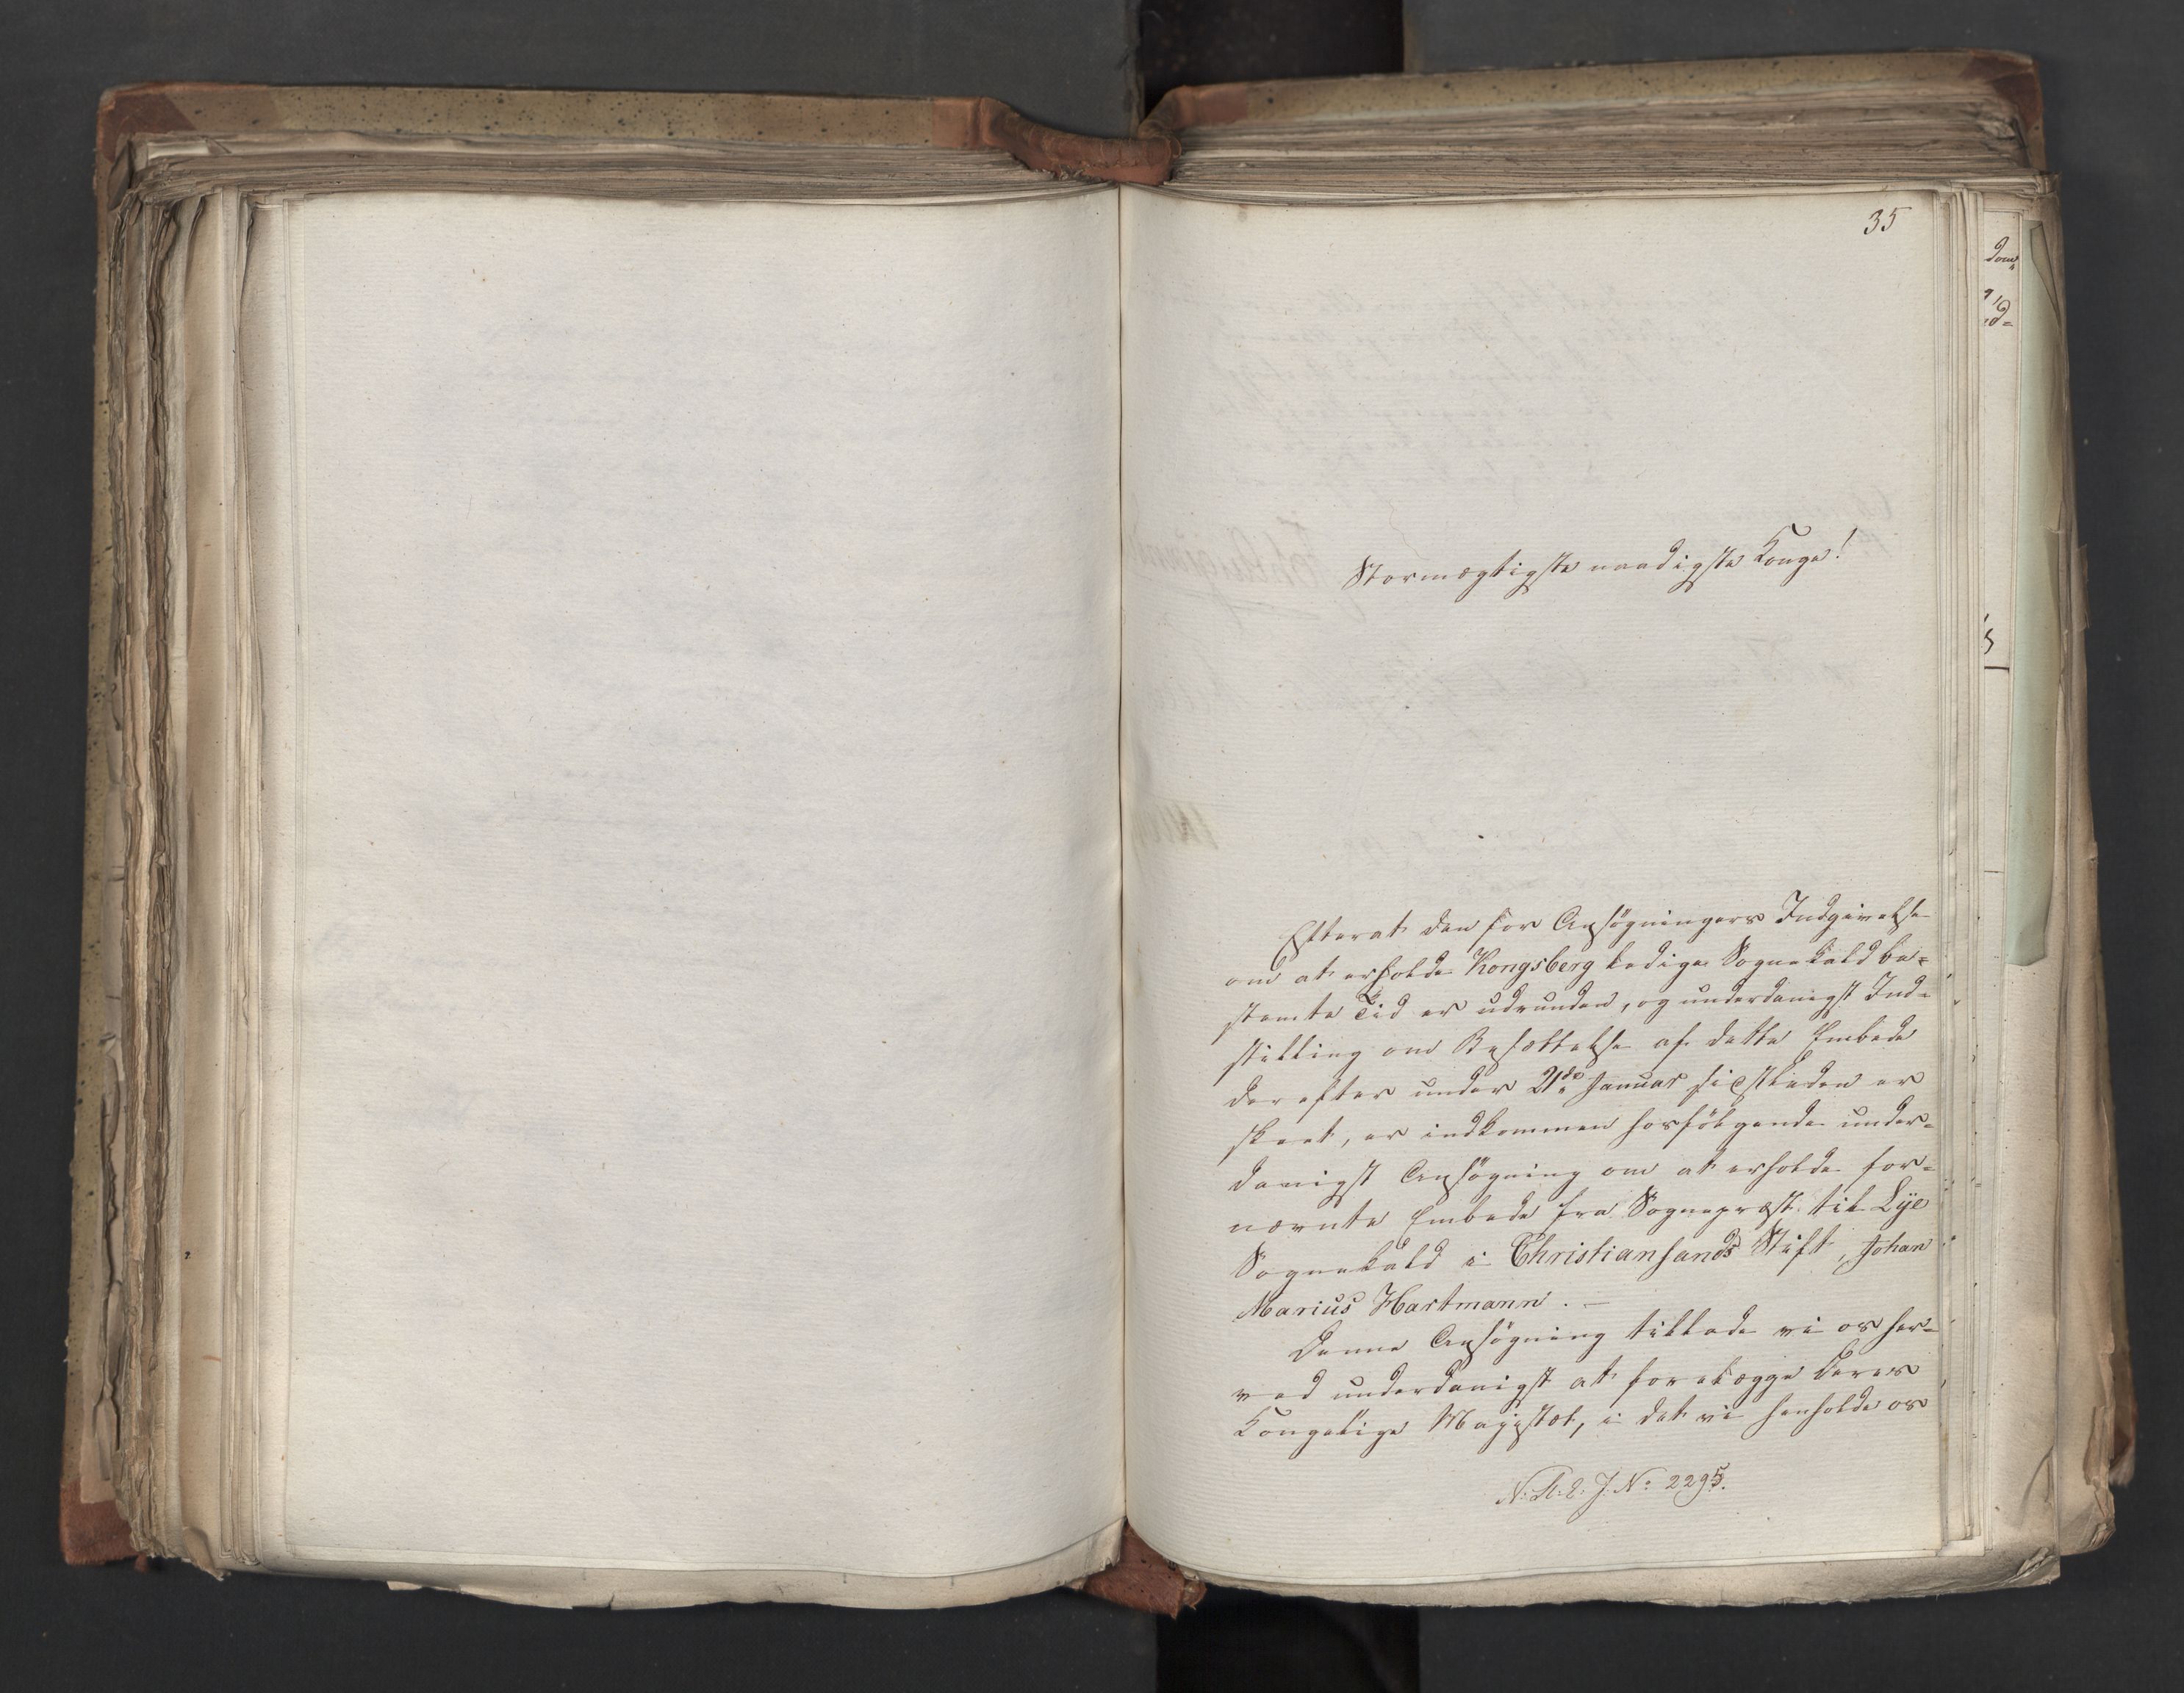 35
Stormægtigste naadigste Konge!
Efterat den for Ansøgningers Indgivelse
om at erholde Kongsberg ledige Sognekald be=
stemte Tid er udrunden, og underdanigst Ind=
stilling om Besættelse af dette Embede
derefter under 21de Januar sidstleden er
skeet, er indkommen hosfølgende under=
danigst Ansøgning om at erholde for=
nævnte Embede fra Sognepræst til Lÿe
Sognekald i Christiansands Stift, Johan
Marius Hartmann. —
Denne Ansøgning tillade vi os her=
ved underdanigst at forelægge Deres
Kongelige Majestæt, i det vi henholde os
J. No 2295.